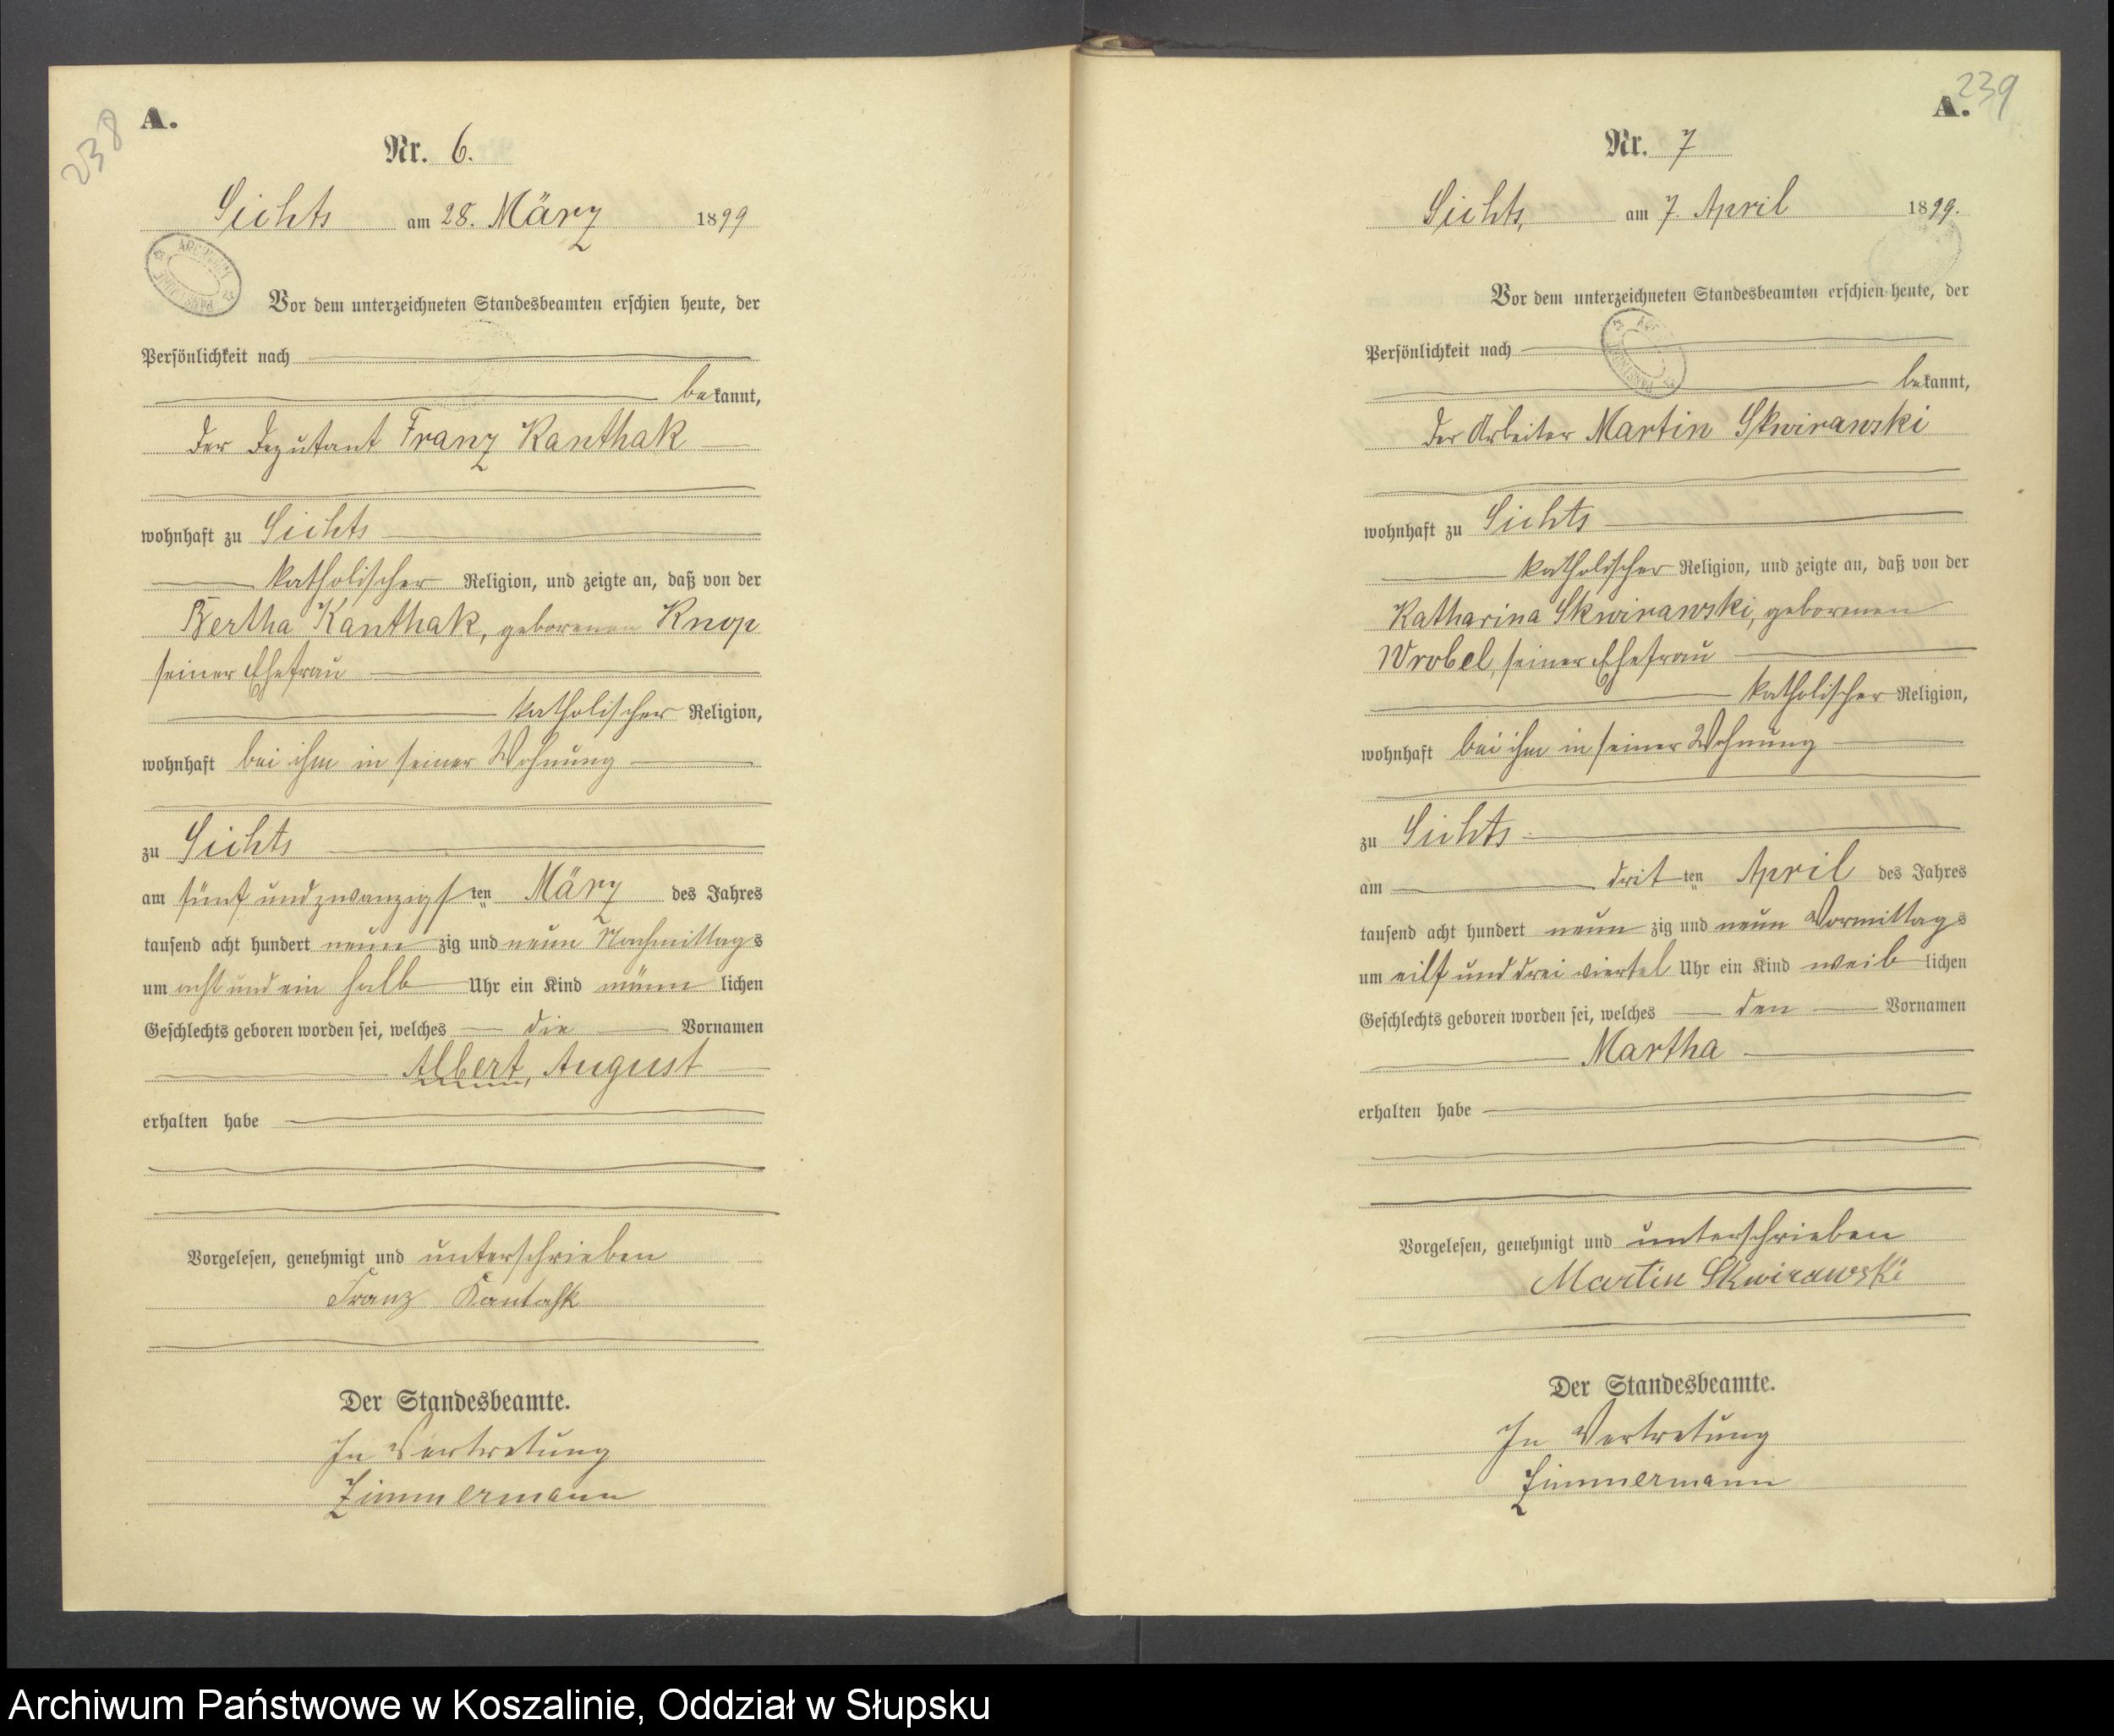 238
A.
Nr. 6.
Sichts am 28. März 1899
ARCHIWUM
Vor dem unterzeichneten Standesbeamten erschien heute, der
Persönlichkeit nach
bekannt,
der Deputant Franz Kanthak
wohnhaft zu Sichts
katholischer Religion, und zeigte an, daß von der
Bertha Kanthak, geborenen Knop
seiner Ehefrau
katholischer Religion,
wohnhaft bei ihm in seiner Wohnung
zu Sichts
am fünf und zwanzigsten März des Jahres
tausend acht hundert neunzig und neun Nachmittags
um acht und ein halb Uhr ein Kind männlichen
Geschlechts geboren worden sei, welches die Vornamen
Albert, August
erhalten habe
Vorgelesen, genehmigt und unterschrieben
Franz Kantahk
Der Standesbeamte.
In Vertretung
Zimmermann
239
A.
Nr. 7
Sichts, am 7. April 1899.
Vor dem unterzeichneten Standesbeamten erschien heute, der
Persönlichkeit nach
bekannt,
der Arbeiter Martin Skwirawski
wohnhaft zu Sichts
katholischer Religion, und zeigte an, daß von der
Katharina Skwirawski, geborenen
Wrobel, seiner Ehefrau
katholischer Religion,
wohnhaft bei ihm in seiner Wohnung
zu Sichts
am dritten April des Jahres
tausend acht hundert neunzig und neun Vormittags
um eilf und drei viertel Uhr ein Kind weiblichen
Geschlechts geboren worden sei, welches den Vornamen
Martha
erhalten habe
Vorgelesen, genehmigt und unterschrieben
Martin Skwirawski
Der Standesbeamte.
In Vertretung
Zimmermann
Archiwum Państwowe w Koszalinie, Oddział w Słupsku